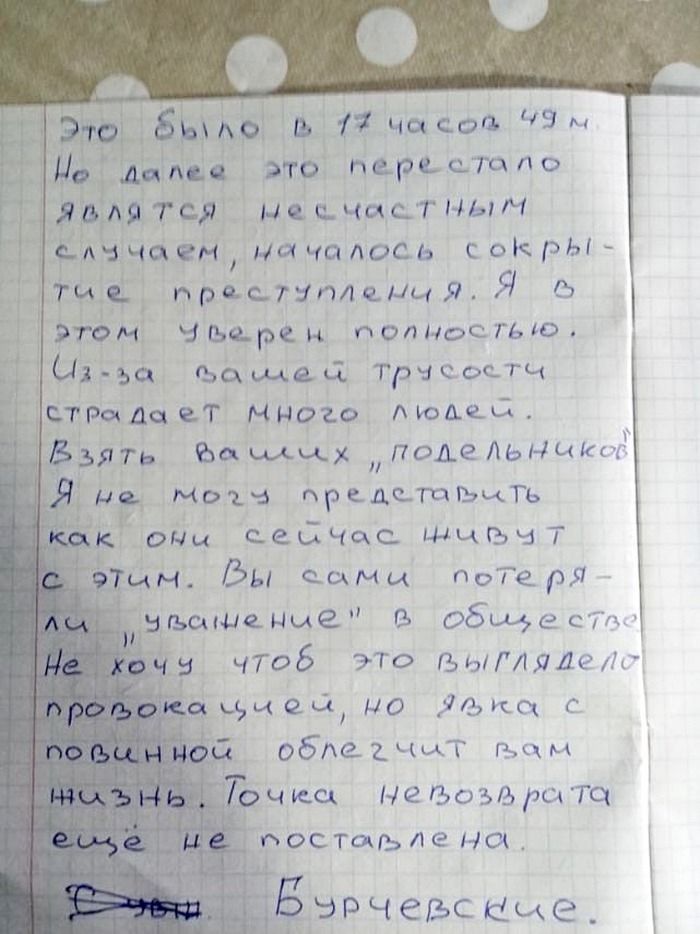 Это было в 17 часов 49 м.
Но далее это перестало
являтся несчастным
случаем, началось сокры-
тие преступления. Я в
этом уверен полностью.
Из-за вашей трусости
страдает много людей.
Взять ваших „подельников"
Я не могу представить
как они сейчас живут
с этим. Вы сами потеря-
ли „уважение" в обществе
Не хочу чтоб это выглядело
провокацией, но явка с
повинной облегчит вам
жизнь. Точка невозврата
ещё не поставлена.
Бурчевские.